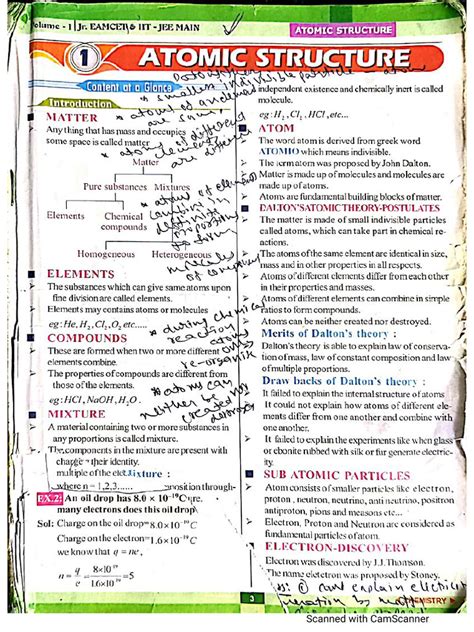 Volume - I Jr. EAMCET & IIT - JEE MAIN
ATOMIC STRUCTURE
1 ATOMIC STRUCTURE
Content at a Glance
Introduction
MATTER
Any thing that has mass and occupies
some space is called matter
Matter
Pure substances Mixtures
Elements Chemical
compounds
Homogeneous Heterogeneous
ELEMENTS
The substances which can give same atoms upon
fine division are called elements.
Elements may contain atoms or molecules
eg:He, H2, Cl2, O2 etc.....
COMPOUNDS
These are formed when two or more different
elements combine.
The properties of compounds are different from
those of the elements.
eg:HCl, NaOH, H2O.
MIXTURE
A material containing two or more substances in
any proportions is called mixture.
The components in the mixture are present with
their identity.
multiple of the
where n = 1,2,3......
EX.2: An oil drop has 8.0 × 10⁻¹⁹C
many electrons does this oil drop
Sol: Charge on the oil drop=8.0×10⁻¹⁹C
Charge on the electron=1.6×10⁻¹⁹C
we know that q = ne,
n = q/e = 8×10⁻¹⁹/1.6×10⁻¹⁹ =5
* smallest indivisible particle
* atoms of an element
are same,
* atoms of different
elements
are different
* atoms of elements
combine in
definite
to form
* during chemical
reaction
atoms
* atoms can
neither be
created nor
destroyed
independent existence and chemically inert is called
molecule.
eg :H2, Cl2, HCl, etc...
ATOM
The word atom is derived from greek word
ATOMIO which means indivisible.
The term atom was proposed by John Dalton.
Matter is made up of molecules and molecules are
made up of atoms.
Atoms are fundamental building blocks of matter.
DALTON'S ATOMIC THEORY-POSTULATES
The matter is made of small indivisible particles
called atoms, which can take part in chemical re-
actions.
The atoms of the same element are identical in size,
mass and in other properties in all respects.
Atoms of different elements differ from each other
in their properties and masses.
Atoms of different elements can combine in simple
ratios to form compounds.
Atoms can be neither created nor destroyed.
Merits of Dalton's theory :
Dalton's theory is able to explain law of conserva-
tion of mass, law of constant composition and law
of multiple proportions.
Draw backs of Dalton's theory :
It failed to explain the internal structure of atoms
It could not explain how atoms of different ele-
ments differ from one another and combine with
one another.
It failed to explain the experiments like when glass
or ebonite rubbed with silk or fur generate electric-
ity.
SUB ATOMIC PARTICLES
Atom consists of smaller particles like electron,
proton, neutron, neutrino, anti neutrino, positron
antiproton, pions and mesons etc...
Electron, Proton and Neutron are considered as
fundamental particles of atom.
ELECTRON-DISCOVERY
Electron was discovered by J.J.Thomson.
The name eletctron was proposed by Stoney.
3
CHEMISTRY
Scanned with CamScanner